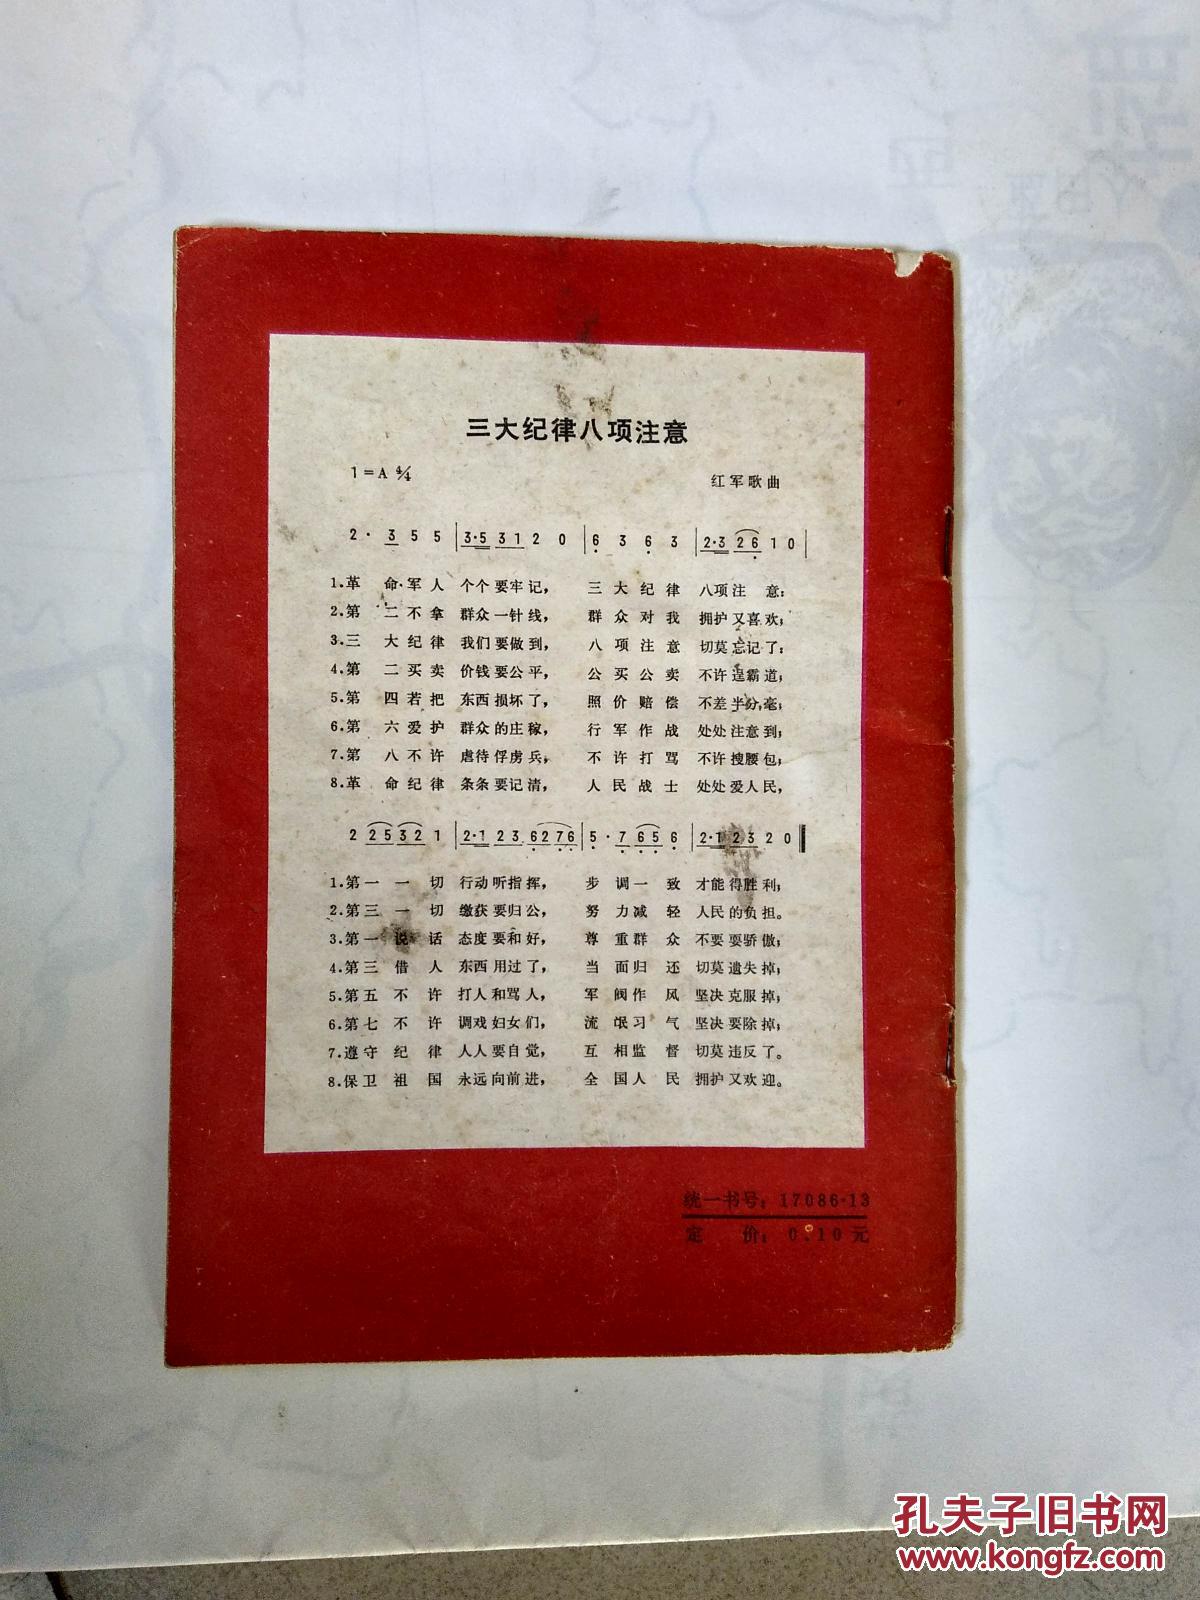 三大纪律八项注意
1=A 4/4 红军歌曲
2· 3 5 5 | 3·5 3 1 2 0 | 6 3 6 3 | 2·3 2 6 1 0 |
1.革 命 军 人 个个要牢记， 三 大 纪 律 八项注 意：
2.第 二 不 拿 群众一针线， 群 众 对 我 拥护又喜欢；
3.三 大 纪 律 我们要做到， 八 项 注 意 切莫忘记了：
4.第 二 买 卖 价钱要公平， 公 买 公 卖 不许逞霸道；
5.第 四 若 把 东西损坏了， 照 价 赔 偿 不差半分毫；
6.第 六 爱 护 群众的庄稼， 行 军 作 战 处处注意到；
7.第 八 不 许 虐待俘虏兵， 不 许 打 骂 不许搜腰包；
8.革 命 纪 律 条条要记清， 人 民 战 士 处处爱人民，
2 2 5 3 2 1 | 2·1 2 3 6 2 7 6 | 5· 7 6 5 6 | 2·1 2 3 2 0 ‖
1.第一 一 切 行动听指挥， 步 调 一 致 才能得胜利；
2.第三 一 切 缴获要归公， 努 力 减 轻 人民的负担。
3.第一 说 话 态度要和好， 尊 重 群 众 不要耍骄傲；
4.第三 借 人 东西用过了， 当 面 归 还 切莫遗失掉；
5.第五 不 许 打人和骂人， 军 阀 作 风 坚决克服掉；
6.第七 不 许 调戏妇女们， 流 氓 习 气 坚决要除掉；
7.遵守 纪 律 人人要自觉， 互 相 监 督 切莫违反了。
8.保卫 祖 国 永远向前进， 全 国 人 民 拥护又欢迎。
统一书号：17086·13
定 价：0.10元
孔夫子旧书网
www.kongfz.com